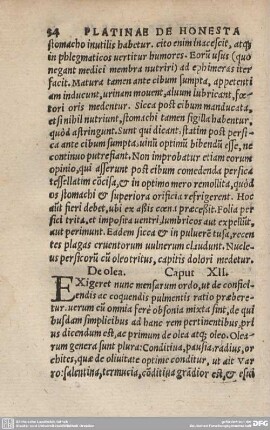 94 PLATINAE DE HONESTA
stomacho inutilis habetur. cito enim inacescit, atq;
in phlegmaticos vertitur humores. Eorū usus (quo
negant medici membra nutriri) ad ephimeras iter
facit. Matura tamen ante cibum sumpta, appetenti
am inducunt, urinam mouent, aluum lubricant, fœ-
tori oris medentur. Sicca post cibum manducata,
et si nihil nutriunt, stomachi tamen sigilla habentur,
quòd astringunt. Sunt qui dicant, statim post persi-
ca ante cibum sumpta, uinū optimū bibendū esse, ne
continuo putrefiant. Non improbatur etiam eorum
opinio, qui asserunt post cibum comedenda persica
tessellatim cōcisa, & in optimo mero remollita, quòd
os stomachi & superiora orificia refrigerent. Hoc
aūt fieri debet, ubi ex assis cœna præcessit. Folia per
sici trita, et imposita uentri lumbricos aut expellūt,
aut perimunt. Eadem sicca & in puluerē tusa, recen
tes plagas cruentorum uulnerum claudunt. Nucle-
us persicorū cū oleo tritus, capitis dolori medetur.
De olea. Caput XII.
EXigeret nunc mensarum ordo, ut de conficien-
dis ac coquendis pulmentis ratio præbere-
tur. uerum cū omnia ferè obsonia mixta sint, de qui
busdam simplicibus ad hanc rem pertinentibus, pri
us dicendum est, ac primum de olea atq; oleo. Olea-
rum genera sunt plura: Conditiua, pausia, radius, or
chites, quæ de oliuitate optime conditur, ut ait Var
ro: salentina, termucia, cōditiua grādior est, & esui